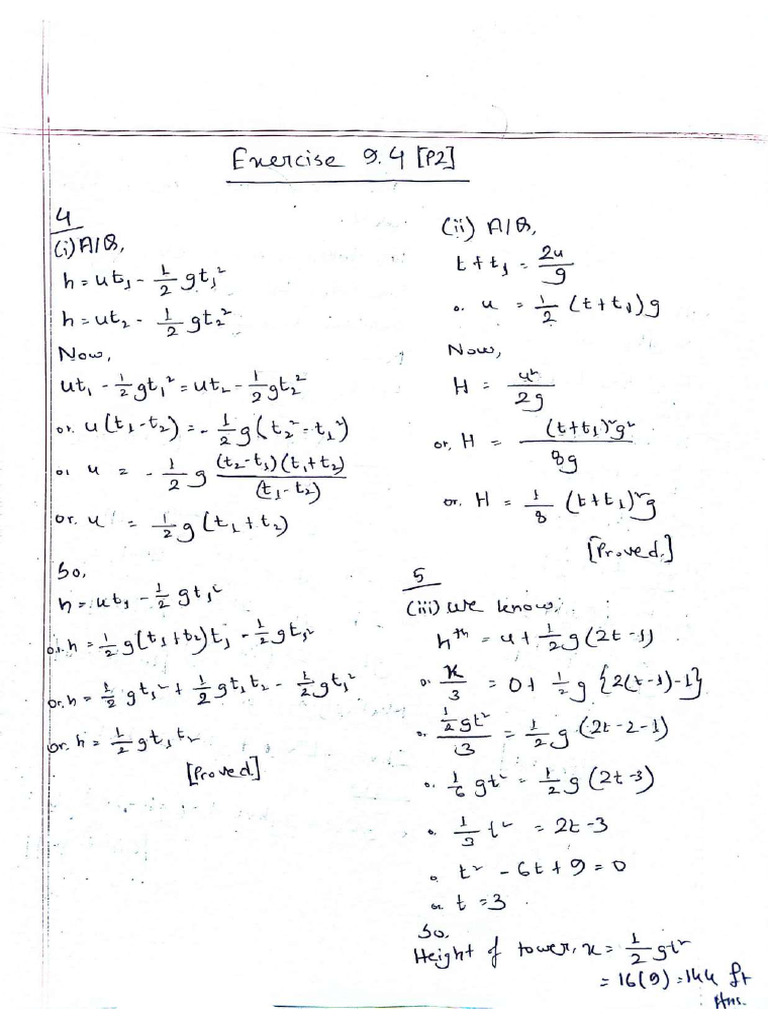 Exercise 9.4 [P2]
4
(i) A/Q,
h = ut₁ - 1/2 gt₁²
h = ut₂ - 1/2 gt₂²
Now,
ut₁ - 1/2 gt₁² = ut₂ - 1/2 gt₂²
or. u(t₁-t₂) = - 1/2 g(t₂² - t₁²)
or u = - 1/2 g (t₂-t₁)(t₁+t₂)/(t₁-t₂)
or. u = 1/2 g(t₁+t₂)
So,
h = ut₁ - 1/2 gt₁²
or. h = 1/2 g(t₁+t₂)t₁ - 1/2 gt₁²
or. h = 1/2 gt₁² + 1/2 gt₁t₂ - 1/2 gt₁²
or. h = 1/2 gt₁t₂
[Proved]
(ii) A/Q,
t + t₁ = 2u/g
o. u = 1/2 (t+t₁)g
Now,
H = u²/2g
or, H = (t+t₁)²g²/8g
or. H = 1/8 (t+t₁)²g
[Proved.]
5
(iii) We know,
hᵗʰ = u + 1/2 g(2t-1)
o. x/3 = 0 + 1/2 g {2(t-1)-1}
o. 1/2 gt²/3 = 1/2 g (2t-2-1)
o. 1/6 gt² = 1/2 g(2t-3)
o. 1/3 t² = 2t-3
o. t² - 6t + 9 = 0
or t = 3
So.
Height of tower, x = 1/2 gt²
= 16(9) = 144 ft
Ans.